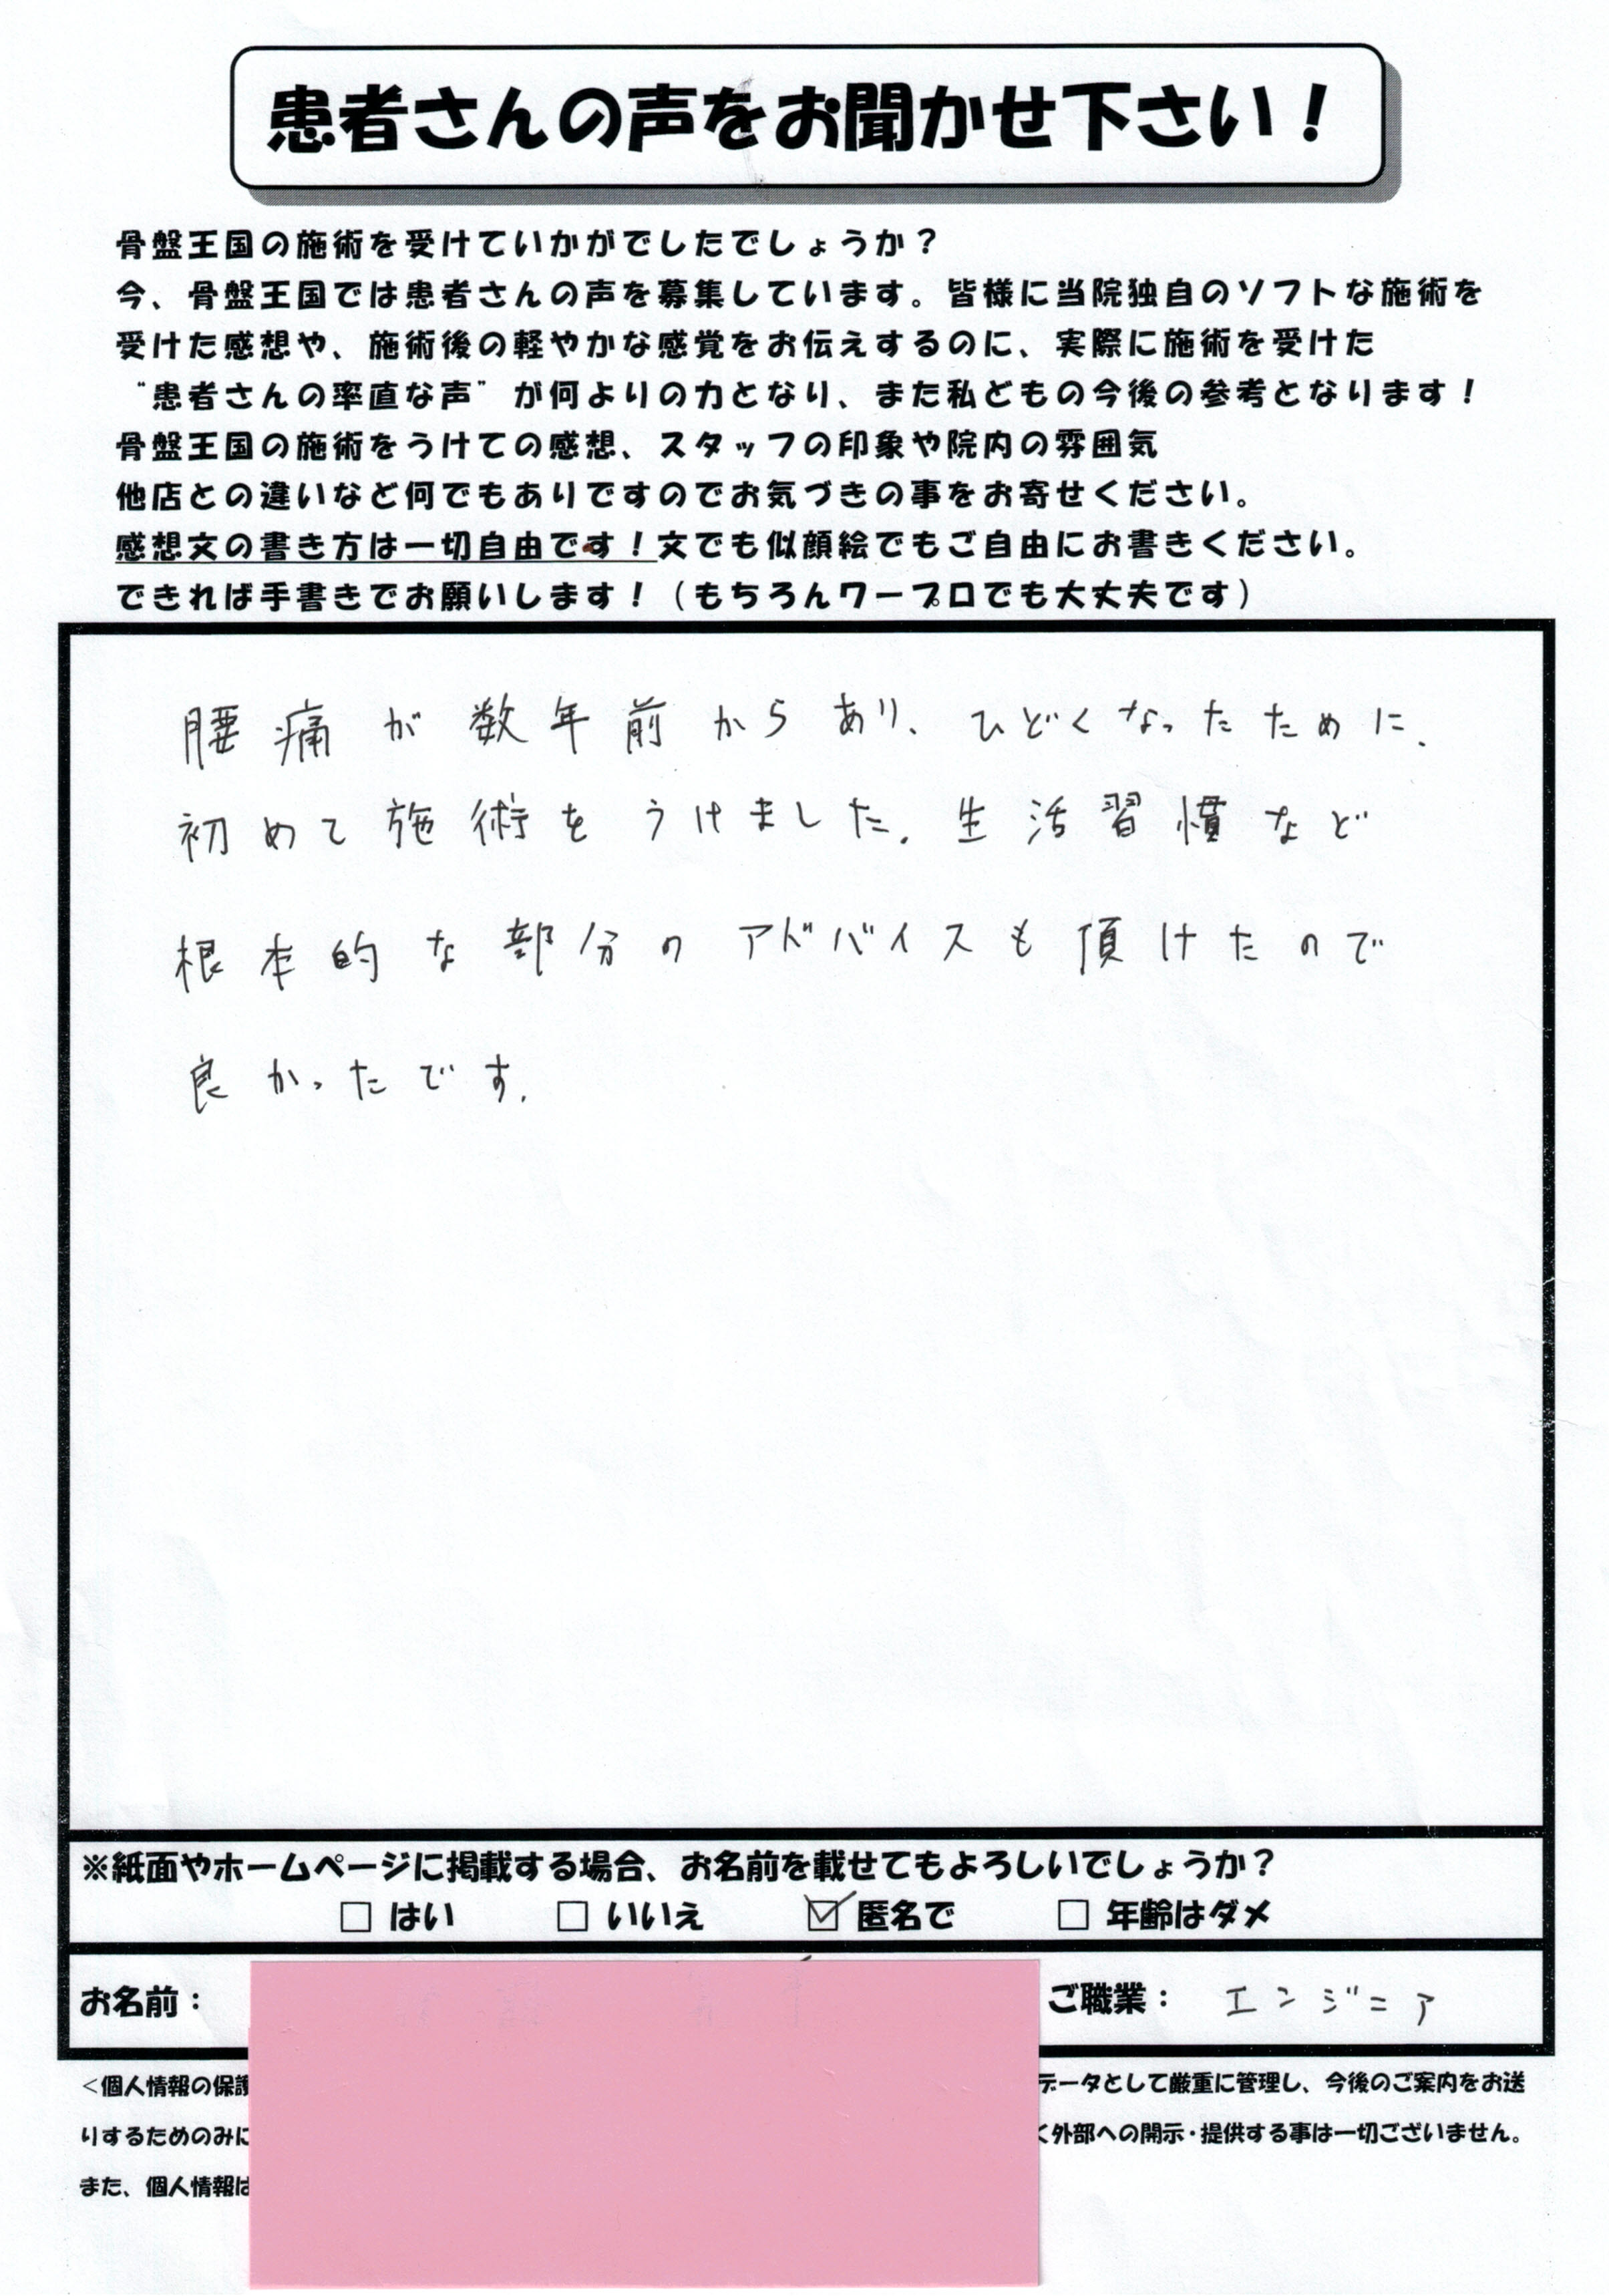 患者さんの声をお聞かせ下さい！
骨盤王国の施術を受けていかがでしたでしょうか？
今、骨盤王国では患者さんの声を募集しています。皆様に当院独自のソフトな施術を
受けた感想や、施術後の軽やかな感覚をお伝えするのに、実際に施術を受けた
“患者さんの率直な声”が何よりの力となり、また私どもの今後の参考となります！
骨盤王国の施術をうけての感想、スタッフの印象や院内の雰囲気
他店との違いなど何でもありですのでお気づきの事をお寄せください。
感想文の書き方は一切自由です！文でも似顔絵でもご自由にお書きください。
できれば手書きでお願いします！（もちろんワープロでも大丈夫です）
腰痛が数年前からあり、ひどくなったために、
初めて施術をうけました。生活習慣など
根本的な部分のアドバイスも頂けたので
良かったです。
※紙面やホームページに掲載する場合、お名前を載せてもよろしいでしょうか？
□ はい □ いいえ ☑ 匿名で □ 年齢はダメ
お名前： ご職業： エンジニア
＜個人情報の保護 データとして厳重に管理し、今後のご案内をお送
りするためのみに く外部への開示・提供する事は一切ございません。
また、個人情報は